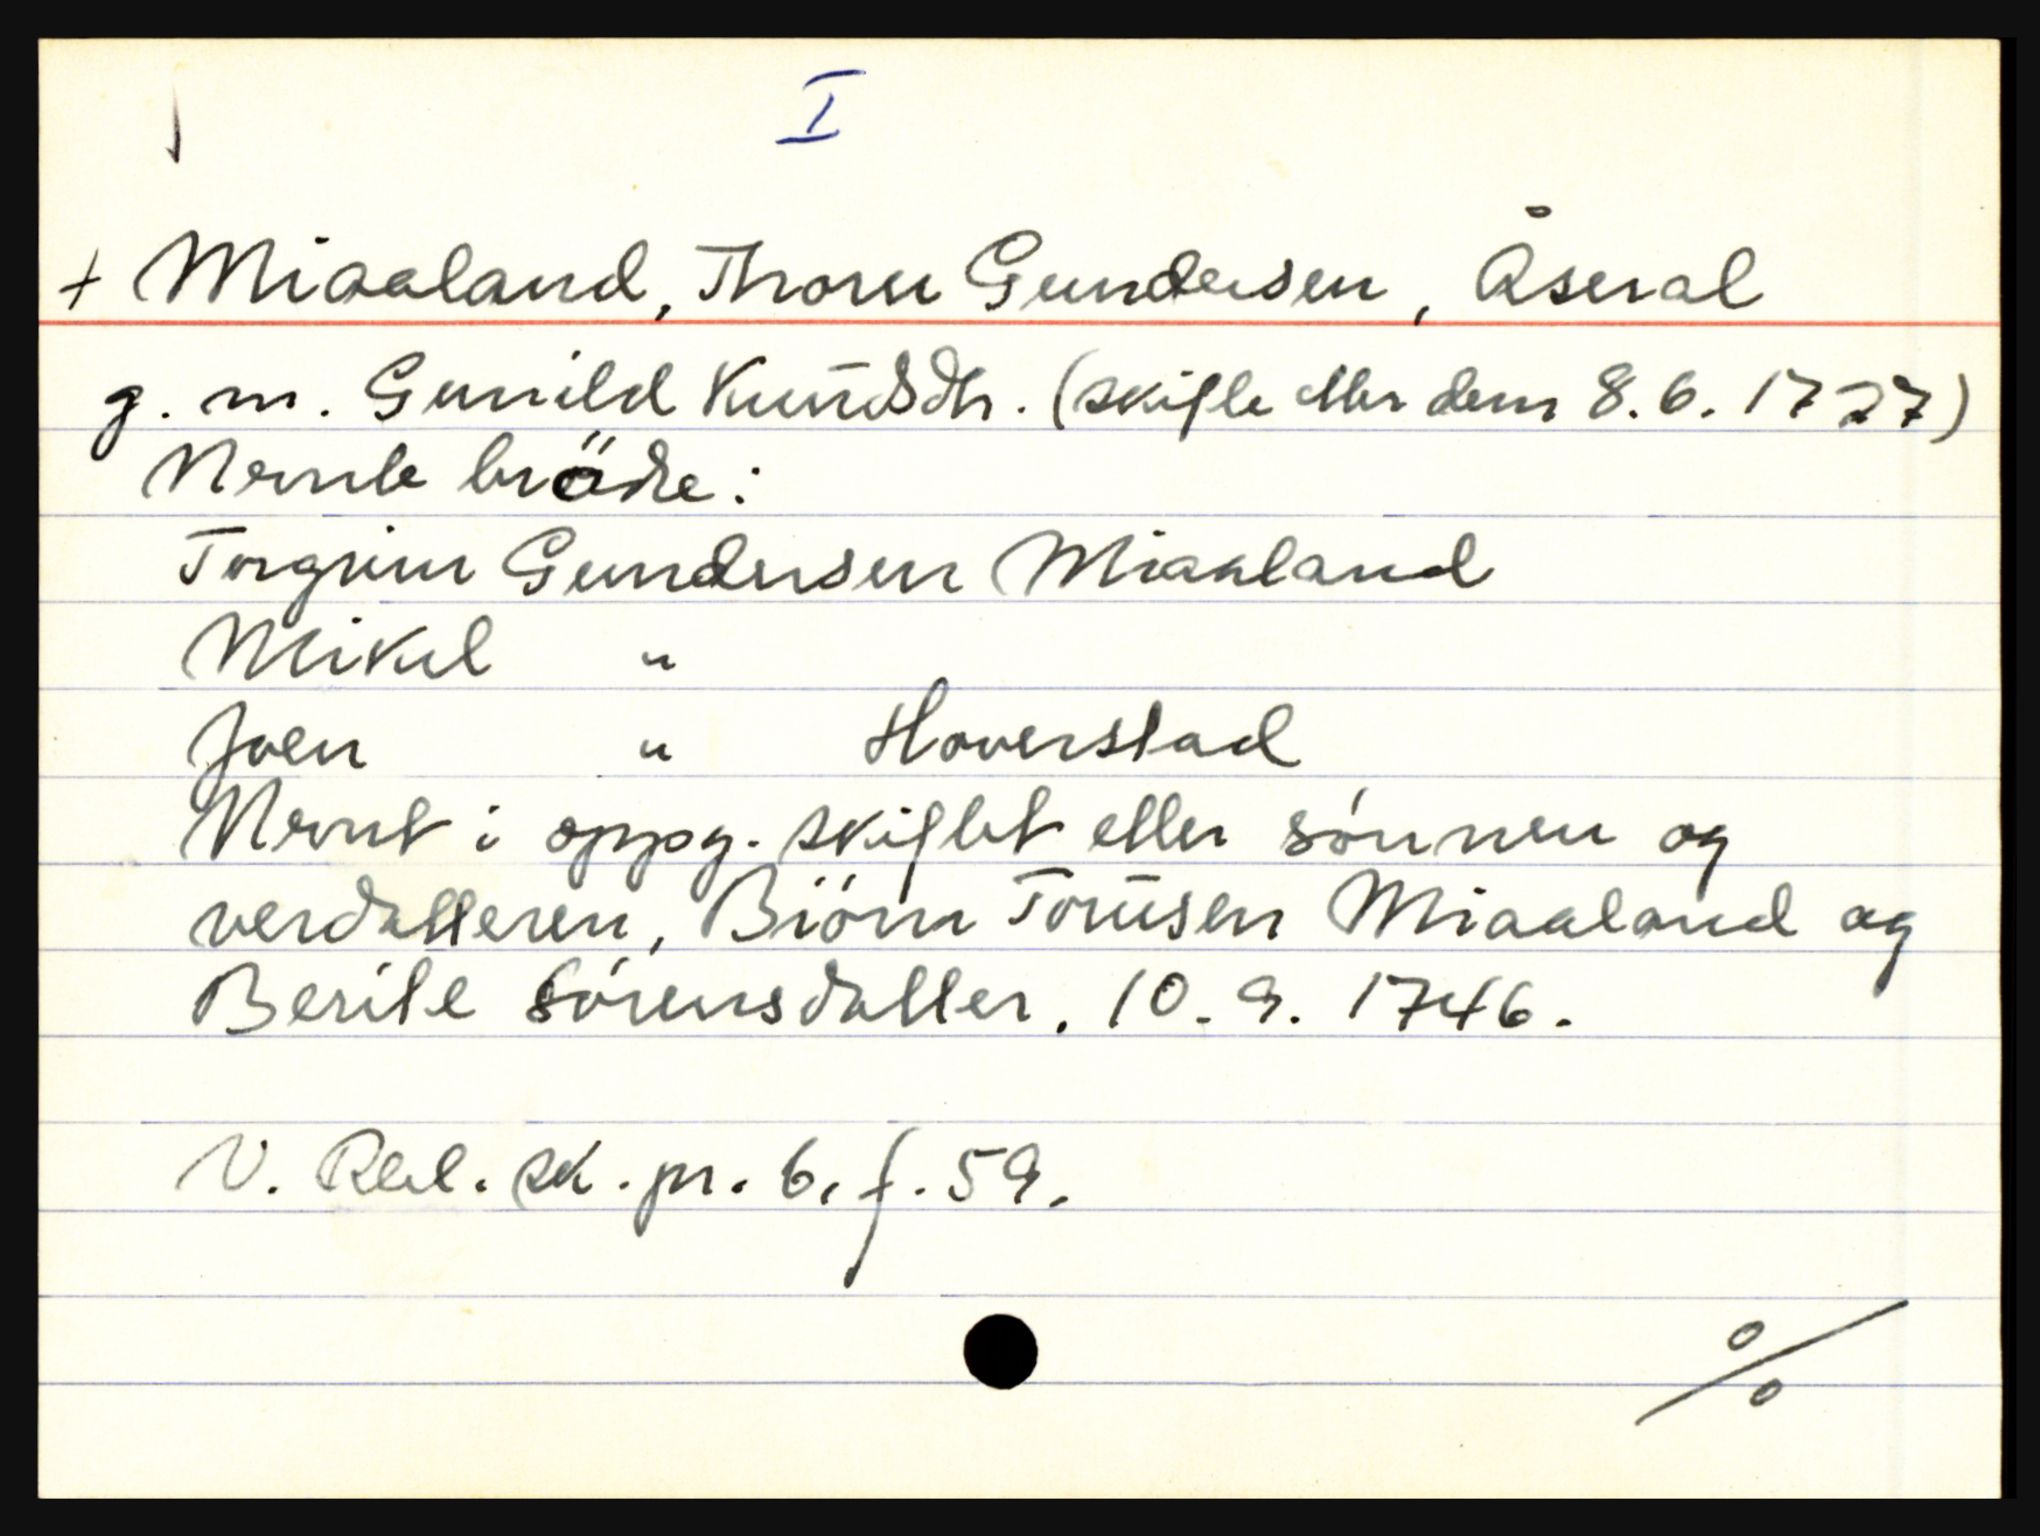 I
+ Miaaland, Thoru Gundersen, Åseral
g. m. Gunild Knūdsdtr. (skifte etter dem 8.6. 1727)
Nevnte brödre:
Torgrim Gundersen Miaaland
Mikel "
Joen " Hoverstad
Nevnt i oppg. skiftet etter sónnen og
verdatteren, Biörn Torūsen Miaaland og
Berite Sórensdatter. 10. 9. 1746.
V. Råb. sk. pr. 6, f. 59.
%